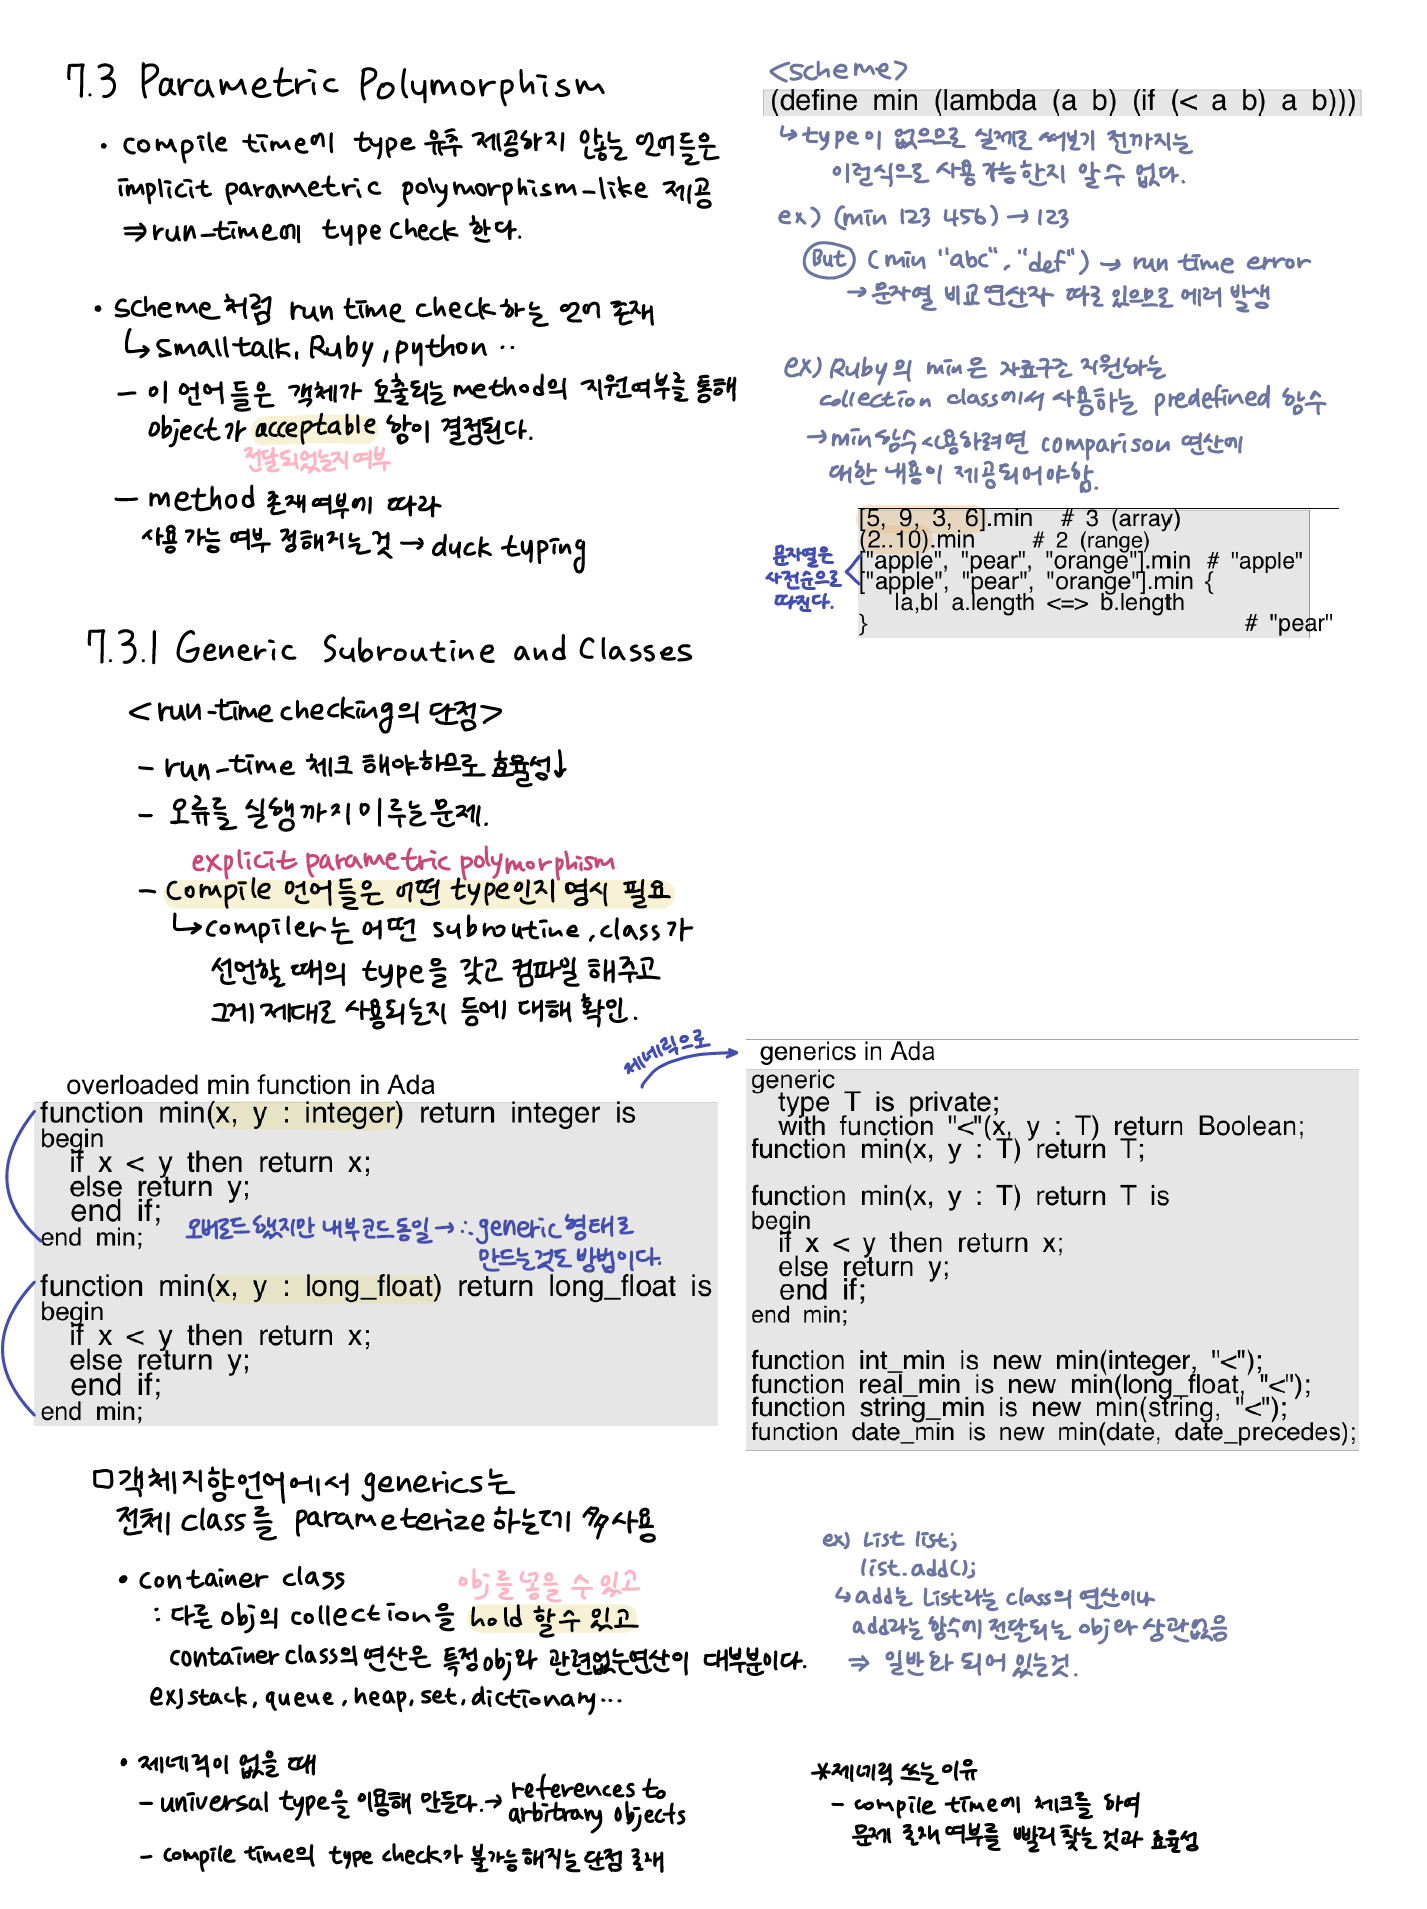 7.3 Parametric Polymorphism
• compile time에 type 유추 제공하지 않는 언어들은
implicit parametric polymorphism-like 제공
⇒ run-time에 type check 한다.
• scheme처럼 run time check하는 언어 존재
↳ smalltalk, Ruby, python ··
- 이 언어들은 객체가 호출되는 method의 지원여부를 통해
object가 acceptable 함이 결정된다.
전달되었는지 여부
- method 존재여부에 따라
사용 가능 여부 정해지는것 → duck typing
<scheme>
(define min (lambda (a b) (if (< a b) a b)))
↳ type이 없으므로 실제로 써보기 전까지는
이런식으로 사용 가능한지 알 수 없다.
ex) (min 123 456) → 123
But (min "abc", "def") → run time error
→ 문자열 비교연산자 따로 있으므로 에러 발생
ex) Ruby의 min은 자료구조 지원하는
collection class에서 사용하는 predefined 함수
→ min함수 사용하려면 comparison 연산에
대한 내용이 제공되어야함.
[5, 9, 3, 6].min # 3 (array)
(2..10).min # 2 (range)
["apple", "pear", "orange"].min # "apple"
["apple", "pear", "orange"].min {
|a,b| a.length <=> b.length
} # "pear"
문자열은
사전순으로
따진다.
7.3.1 Generic Subroutine and Classes
<run-time checking의 단점>
- run-time 체크 해야하므로 효율성↓
- 오류를 실행까지 미루는 문제.
explicit parametric polymorphism
- compile 언어들은 어떤 type인지 명시 필요
↳ compiler는 어떤 subroutine, class가
선언할 때의 type을 갖고 컴파일 해주고
그게 제대로 사용되는지 등에 대해 확인.
제네릭으로
overloaded min function in Ada
function min(x, y : integer) return integer is
begin
if x < y then return x;
else return y;
end if;
end min;
오버로드 했지만 내부코드 동일 → ∴ generic 형태로
만드는것도 방법이다.
function min(x, y : long_float) return long_float is
begin
if x < y then return x;
else return y;
end if;
end min;
generics in Ada
generic
type T is private;
with function "<"(x, y : T) return Boolean;
function min(x, y : T) return T;
function min(x, y : T) return T is
begin
if x < y then return x;
else return y;
end if;
end min;
function int_min is new min(integer, "<");
function real_min is new min(long_float, "<");
function string_min is new min(string, "<");
function date_min is new min(date, date_precedes);
□ 객체지향언어에서 generics는
전체 class를 parameterize 하는데 多사용
• container class
obj를 넣을 수 있고
: 다른 obj의 collection을 hold 할 수 있고
container class의 연산은 특정 obj와 관련없는연산이 대부분이다.
ex) stack, queue, heap, set, dictionary ···
ex) List list;
list.add();
↳ add는 List라는 class의 연산이나
add라는 함수에 전달되는 obj와 상관없음
⇒ 일반화 되어 있는것.
• 제네릭이 없을 때
- universal type을 이용해 만든다. → references to
arbitrary objects
- compile time의 type check가 불가능해지는 단점 존재
*제네릭 쓰는 이유
- compile time에 체크를 하여
문제 존재 여부를 빨리 찾는 것과 효율성